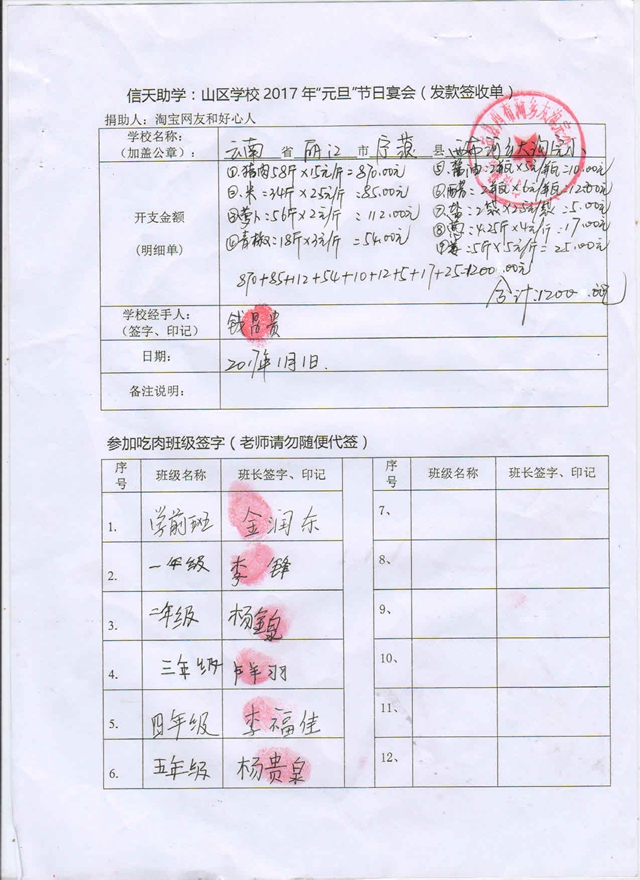 信天助学：山区学校2017年“元旦”节日宴会（发款签收单）
捐助人：淘宝网友和好心人
学校名称：
（加盖公章）：
云南 省 丽江 市 宁蒗 县
开支金额
（明细单）
①猪肉58斤×15元/斤=870.00元
②米:34斤×2.5元/斤=85.00元
③萝卜:56斤×2元/斤=112.00元
④青椒:18斤×3元/斤=54.00元
⑤酱油:2瓶×5元/瓶=10.00元
⑥醋:2瓶×6元/瓶=12.00元
⑦盐:2袋×2.5元/袋=5.00元
⑧葱:4.25斤×4元/斤=17.00元
5斤×5元/斤=25.00元
870+85+12+54+10+12+5+17+25=1200.00元
合计:1200.元
学校经手人：
（签字、印记）
钱昌贵
日期：
2017年1月1日.
备注说明：
参加吃肉班级签字（老师请勿随便代签）
序号 班级名称 班长签字、印记 序号 班级名称 班长签字、印记
1. 学前班 金润东 7、
2. 一年级 李锋 8、
3. 二年级 杨 9、
4. 三年级 10、
5. 四年级 李福佳 11、
6. 五年级 杨贵皇 12、